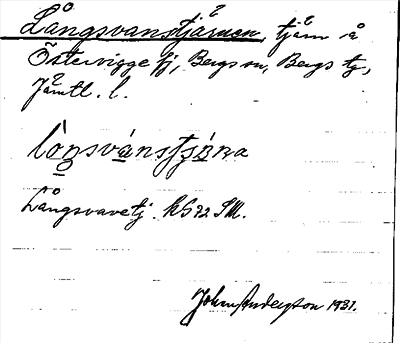 Långsvanstjärnen, tjärn å
Östervigge fj, Bergs sn, Bergs tg,
Jämtl. l.
lòŋsvánstjä̀rna
Långsvavetj k S72 SM.
John Andersson 1931.